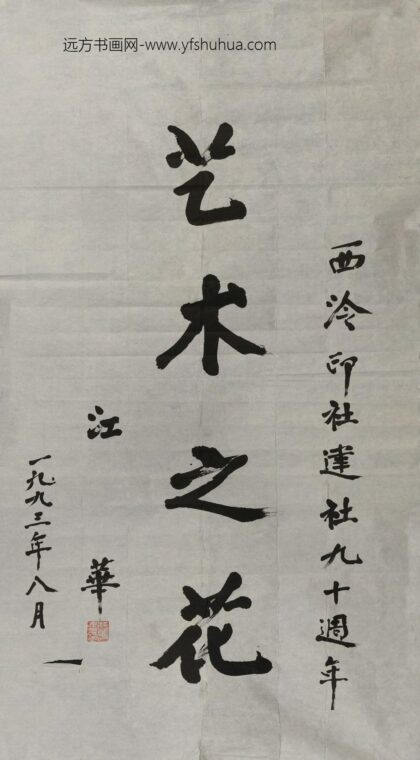 远方书画网-www.yfshuhua.com
西泠印社建社九十週年
艺术之花
江華
一九九三年八月一